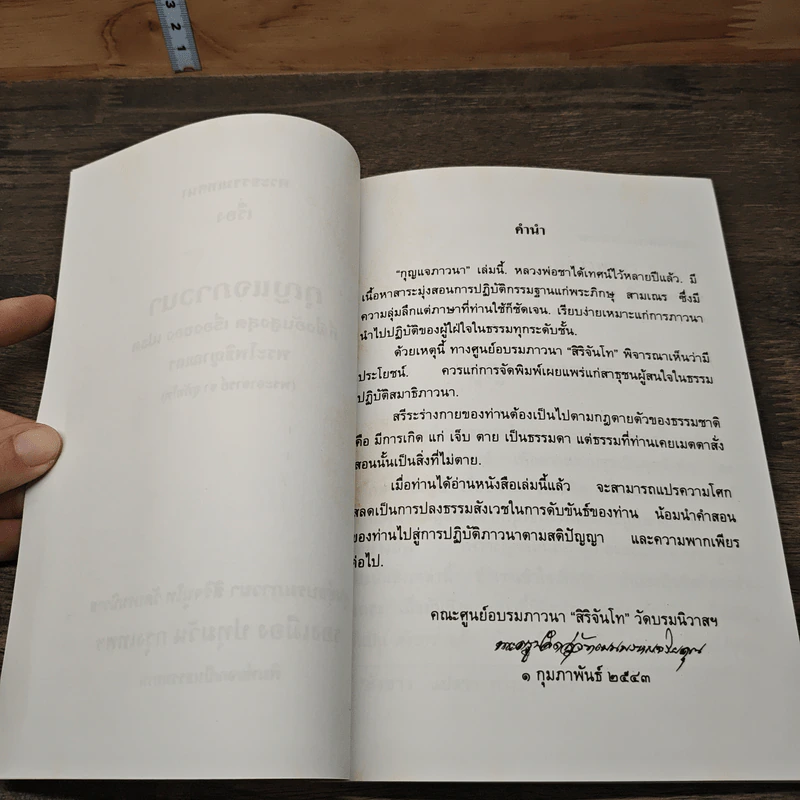 3
2
1
คำนำ
"กุญแจภาวนา" เล่มนี้. หลวงพ่อชาได้เทศน์ไว้หลายปีแล้ว. มี
เนื้อหาสาระมุ่งสอนการปฏิบัติกรรมฐานแก่พระภิกษุ สามเณร ซึ่งมี
ความลุ่มลึกแต่ภาษาที่ท่านใช้ก็ชัดเจน. เรียบง่ายเหมาะแก่การภาวนา
นำไปปฏิบัติของผู้ใฝ่ใจในธรรมทุกระดับชั้น.
ด้วยเหตุนี้ ทางศูนย์อบรมภาวนา "สิริจันโท" พิจารณาเห็นว่ามี
ประโยชน์. ควรแก่การจัดพิมพ์เผยแพร่แก่สาธุชนผู้สนใจในธรรม
ปฏิบัติสมาธิภาวนา.
สรีระร่างกายของท่านต้องเป็นไปตามกฎตายตัวของธรรมชาติ
คือ มีการเกิด แก่ เจ็บ ตาย เป็นธรรมดา แต่ธรรมที่ท่านเคยเมตตาสั่ง
สอนนั้นเป็นสิ่งที่ไม่ตาย.
เมื่อท่านได้อ่านหนังสือเล่มนี้แล้ว จะสามารถแปรความโศก
สลดเป็นการปลงธรรมสังเวชในการดับขันธ์ของท่าน น้อมนำคำสอน
ของท่านไปสู่การปฏิบัติภาวนาตามสติปัญญา และความพากเพียร
ต่อไป.
คณะศูนย์อบรมภาวนา "สิริจันโท" วัดบรมนิวาสฯ
๑ กุมภาพันธ์ ๒๕๔๓